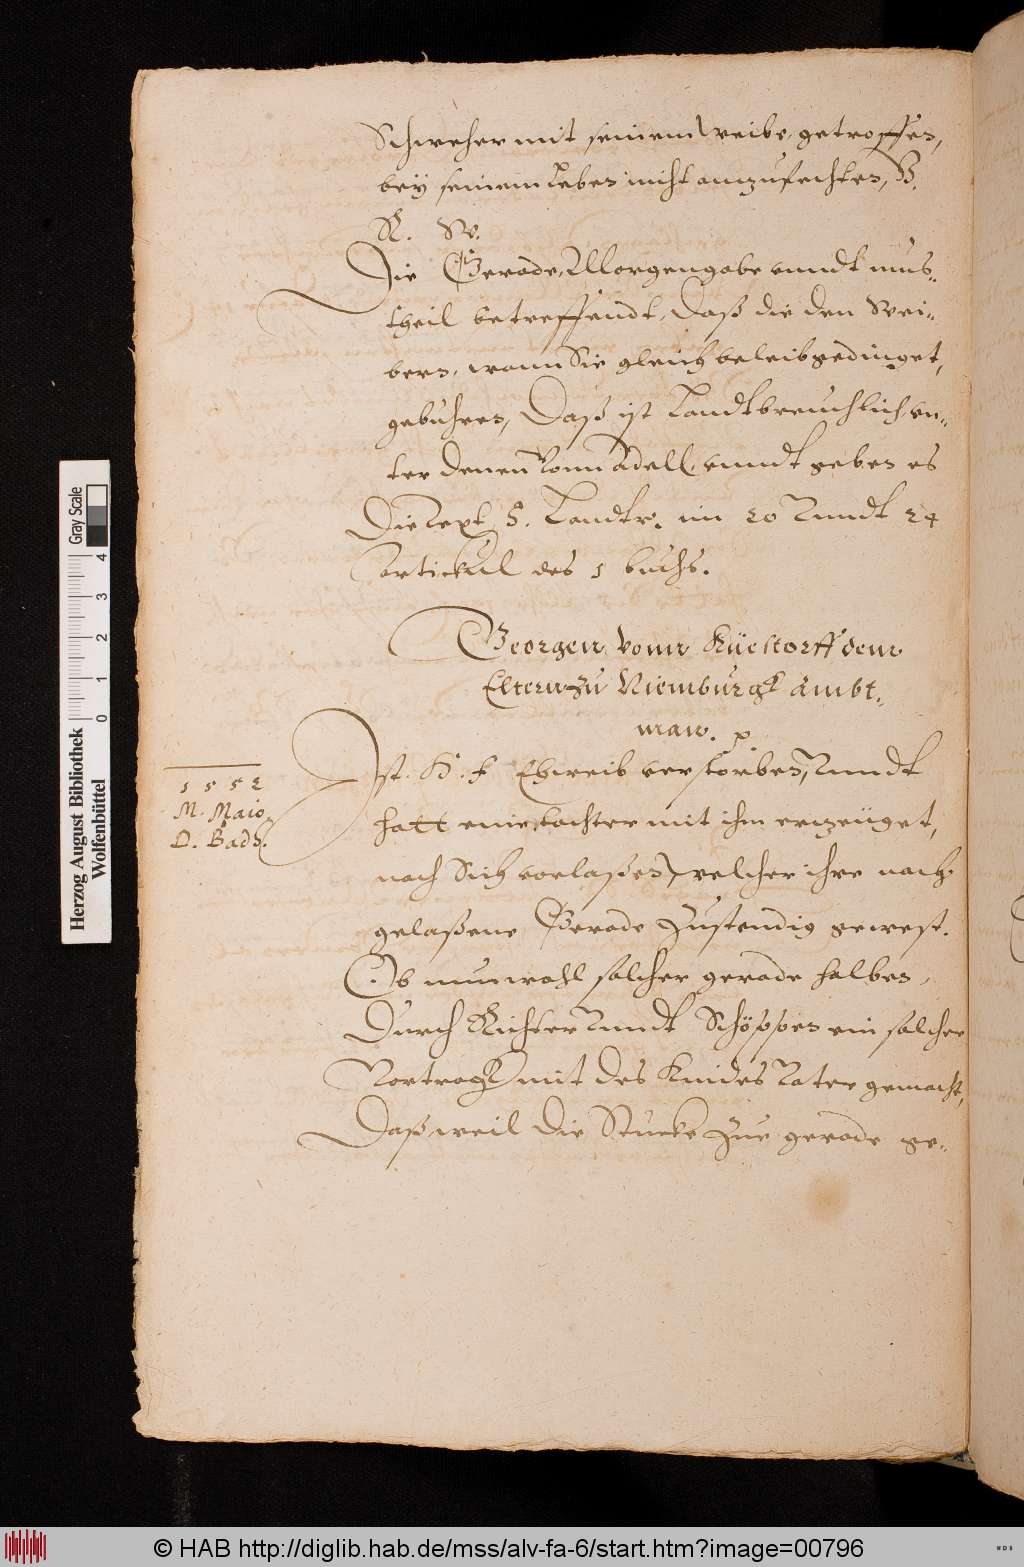 Schweher mit seinem weibe, getroffen,
bey seinem leben nicht anzufechten, V.
R. W.
Die Gerade, Morgengabe unndt mus-
theil betreffendt, Daß die den Wei-
bern, wann Sie gleich beleibgedinget,
gebuhren, Daß ist Landtbreuchlich un-
ter denen vonn Adell, unndt geben es
Die Text S. Landtr. im 20 Vnndt 24
artickul des 1 buchs.
Georgen vonn
dem
Eltern zu Niemburgk Ambt
man. p
1552
M. Maio
D. Bads.
Ist. H. F Ehweib verstorben, Vnndt
hatt eine tochter mit ihm erzeüget,
nach Sich vorlaßen, welcher ihre nach
gelaßene Gerade zustendig gewest.
Ob nun wohl solcher gerade halben,
Durch Richter Vnndt Schöppen ein solcher
Vortragk mit des Kindes Vater gemacht,
Daß, weil die Stucke zur gerade ge-
Herzog August Bibliothek
Wolfenbüttel
Gray Scale
0 1 2 3 4
© HAB http://diglib.hab.de/mss/alv-fa-6/start.htm?image=00796